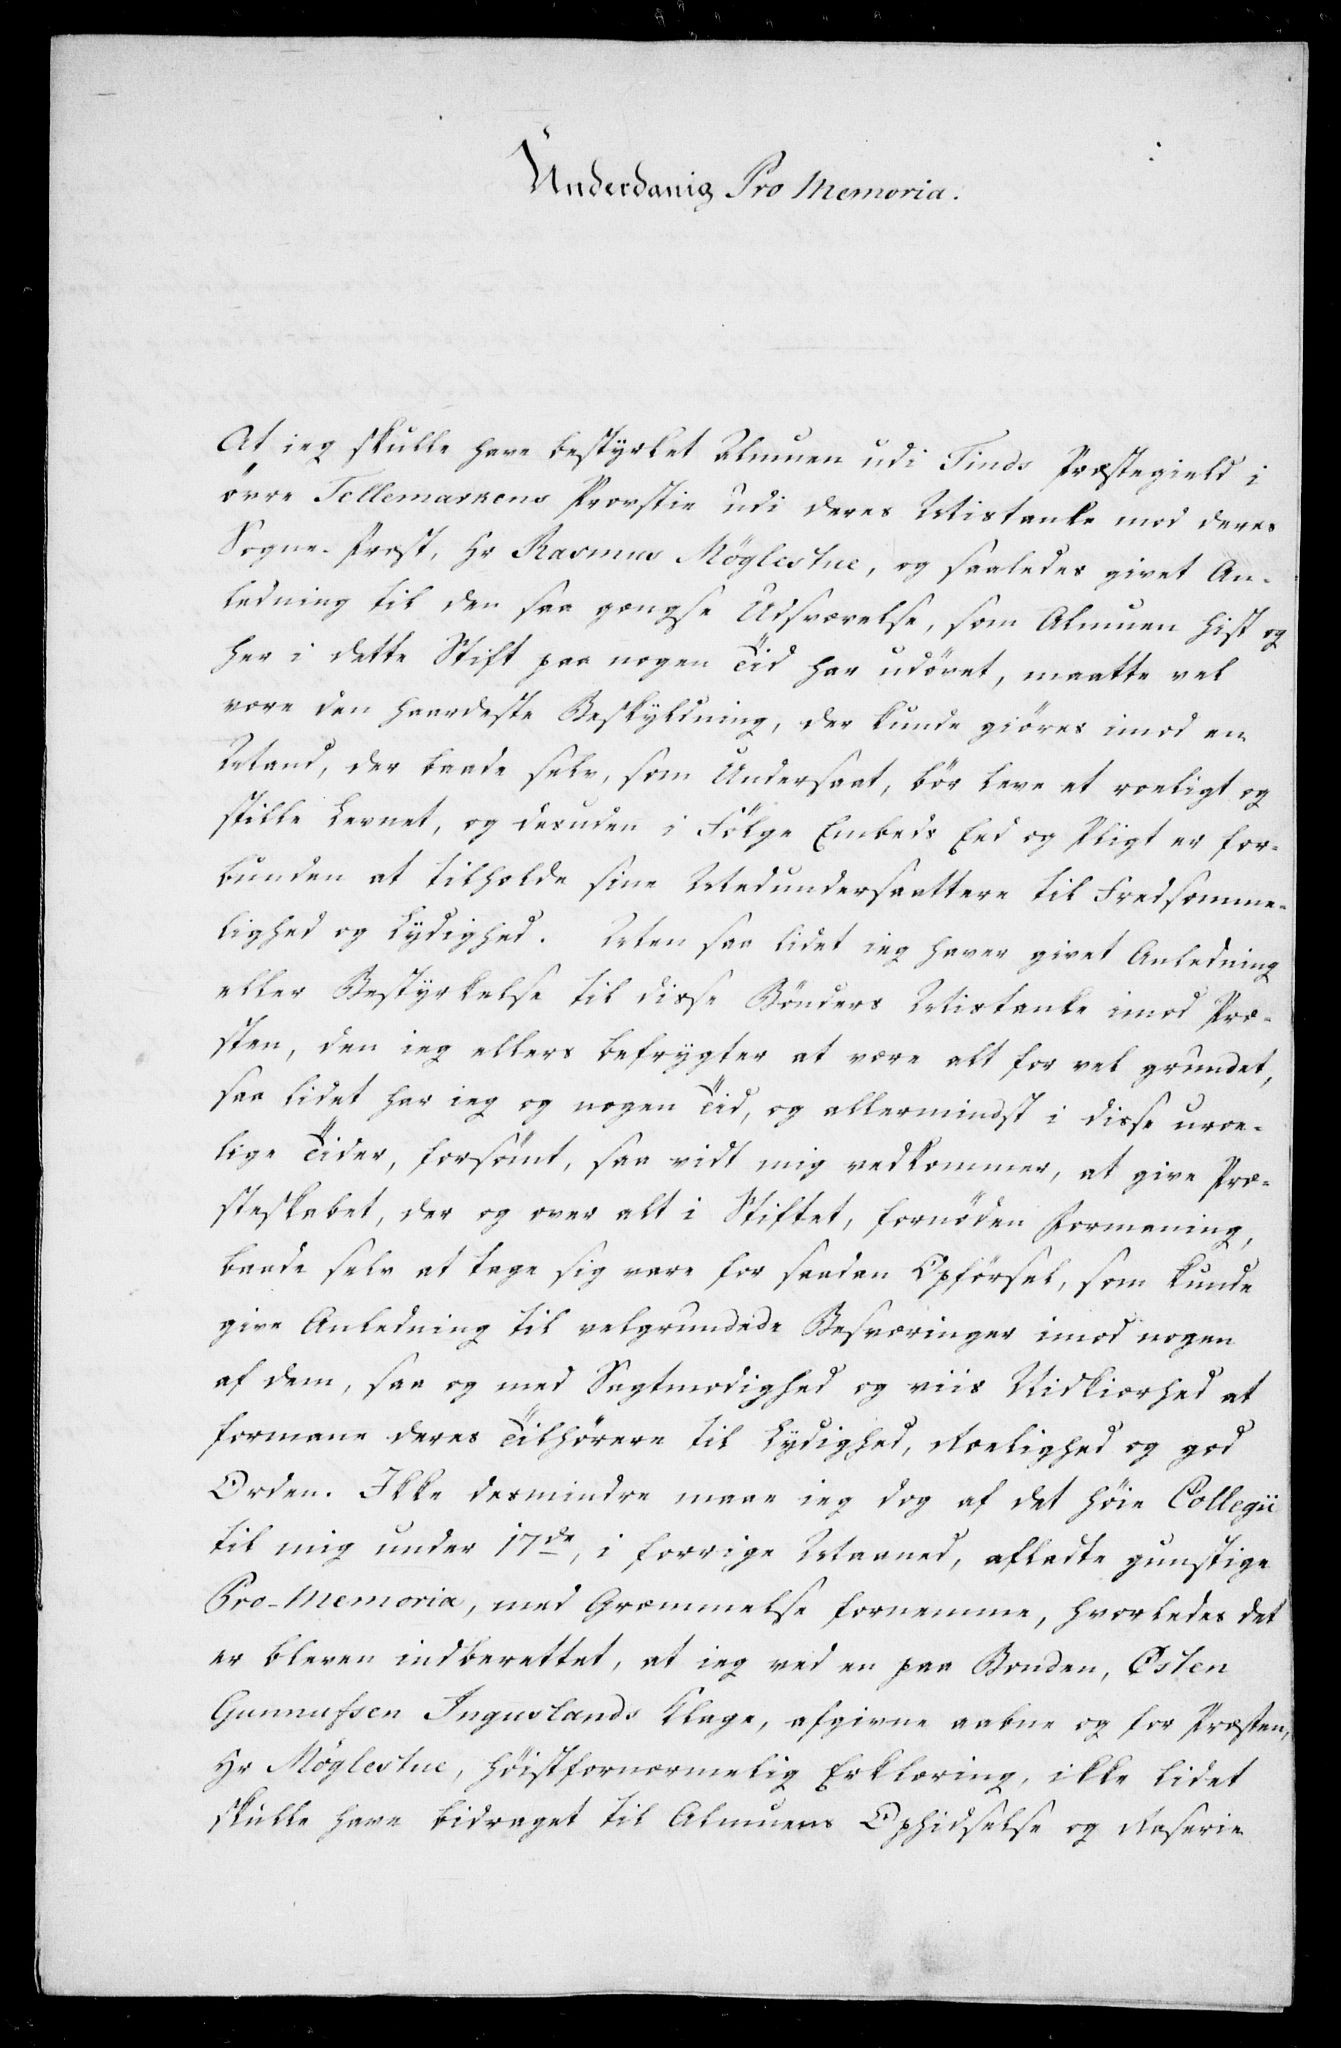 Underdanig Pro Memoria.
At ieg skulle have bestyrket Almuen udi Tinds Præstegield i
övre Tellemarkens Provstie udi deres Mistanke mod deres
Sogne-Præst, Hr Rasmus Möglestue, og saaledes givet An-
ledning til den saa gængse Udsvævelse, som Almuen hist og
her i dette Stift paa nogen Tid har udövet, maatte vel
være den haardeste Beskyldning, der kunde giöres imod en
Mand, der baade selv, som Undersaat, bör leve et roeligt og
stille Levnet, og desuden i Fölge Embeds Eed og Pligt er for-
bunden at tilholde sine Medundersaattere til Fredsomme-
lighed og Lydighed. Men saa lidet ieg haver givet Anledning
eller Bestyrkelse til disse Bönders Mistanke imod Præ-
sten, den ieg ellers befrygter at være alt for vel grundet,
saa lidet har ieg og nogen Tid, og allermindst i disse uroe-
lige Tider, forsömt, saa vidt mig vedkommer, at give Præ-
steskabet, der og over alt i Stiftet, fornöden Formaning,
baade selv at tage sig vare for saadan Opförsel, som kunde
give Anledning til velgrundede Besværinger imod nogen
af dem, saa og med Sagtmodighed og viis Nidkiærhed at
formane deres Tilhörere til Lydighed, Roelighed og god
Orden. Ikke desmindre maae ieg dog af det höie Collegii
til mig under 17de, i forrige Maaned, afladte gunstige
Pro-Memoria, med Græmmelse fornemme, hvorledes det
er bleven indberettet, at ieg ved en paa Bonden, Østen
Gunnufsen Inguslands Klage, afgivne aabne og for Præsten,
Hr Möglestue, höistfornærmelig Erklæring, ikke lidet
skulle have bidraget til Almuens Ophidselse og Raserie